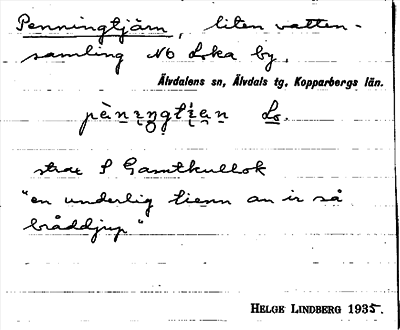 Penningtjärn, liten vatten-
samling NO Loka by.
Älvdalens sn, Älvdals tg, Kopparbergs län.
pèni̯ŋgtíe̯n Lo.
strax S Gamtkullok
"en underlig tienn an ir så
bråddjup"
HELGE LINDBERG 1935.